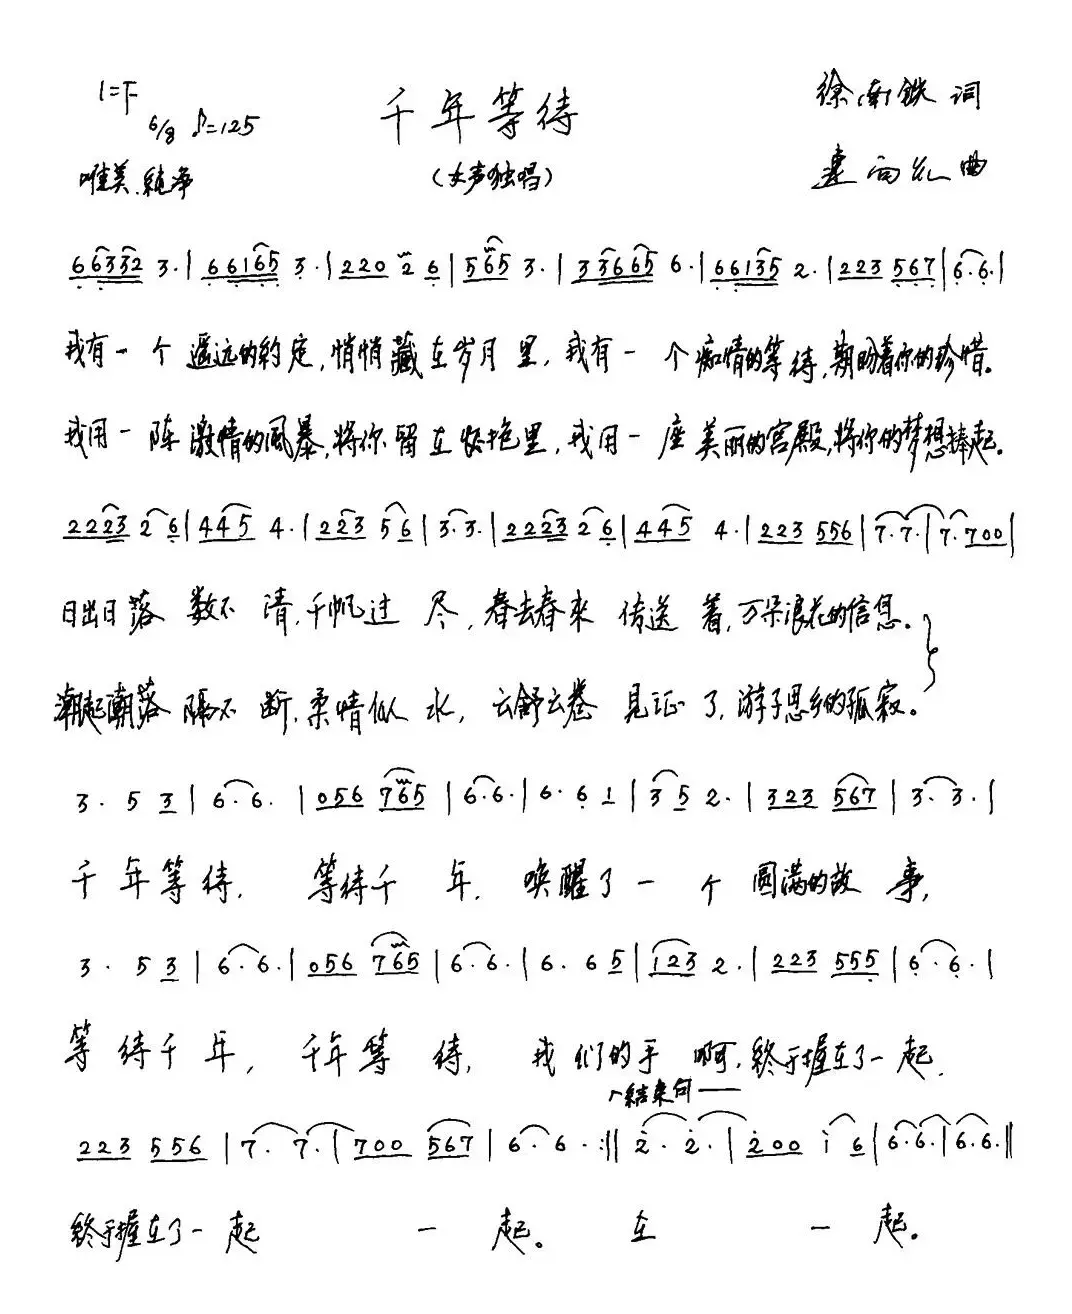 1=F
6/8 ♪=125
千年等待
(女声独唱)
徐南铁 词
唯美、純净
曲
6 6 3 3 2 3· | 6 6 1 6 5 3· | 2 2 0 2 6 | 5 6 5 3· | 3 3 6 6 5 6· | 6 6 1 3 5 2· | 2 2 3 5 6 7 | 6· 6· |
我有一个遥远的约定,悄悄藏在岁月里,我有一个痴情的等待,期盼着你的珍惜。
我用一阵激情的风暴,将你留在怀抱里,我用一座美丽的宫殿,将你的梦想捧起。
2 2 2 3 2 6 | 4 4 5 4· | 2 2 3 5 6 | 3· 3· | 2 2 2 3 2 6 | 4 4 5 4· | 2 2 3 5 5 6 | 7· 7· | 7· 7 0 0 |
日出日落数不清,千帆过尽,春去春来传送着,万朵浪花的信息。
潮起潮落隔不断,柔情似水,云舒云卷见证了,游子思乡的孤寂。
3· 5 3 | 6· 6· | 0 5 6 7 6 5 | 6· 6· | 6· 6 1 | 3 5 2· | 3 2 3 5 6 7 | 3· 3· |
千年等待,等待千年,唤醒了一个圆满的故事,
3· 5 3 | 6· 6· | 0 5 6 7 6 5 | 6· 6· | 6· 6 5 | 1 2 3 2· | 2 2 3 5 5 5 | 6· 6· |
等待千年,千年等待,我们的手啊,终于握在了一起,
结束句——
2 2 3 5 5 6 | 7· 7· | 7 0 0 5 6 7 | 6· 6· :‖ 2· 2· | 2 0 0 1 6 | 6· 6· | 6· 6· ‖
终于握在了一起 一起。在一起。